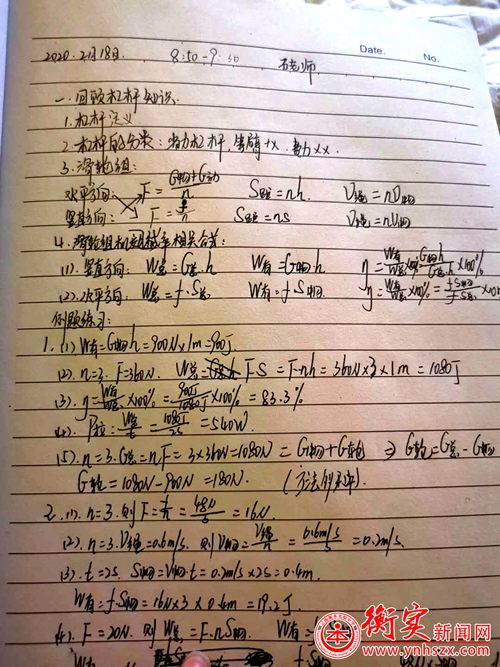 Date. No.
2020.2月18日. 8:50-9:30 老师
一.回顾杠杆知识.
1.杠杆定义
2.杠杆的分类:省力杠杆,
3.滑轮组:
水平方向: F=(G物+G动)/n S绳=nh. V绳=nV物
竖直方向: F=f/n S绳=ns V绳=nV物
4.滑轮组机械效率相关公式:
(1).竖直方向: W总=G总.h W有=G物h η=W有/W总×100%=G物h/G总h×100%
(2).水平方向: W总=f.S总 W有=f.S物. η=W有/W总×100%=fS物/fS总×100%
例题练习:
1.(1)W有=G物h=900N×1m=900J
(2).n=3. F=360N. W总=FS=F.nh=360N×3×1m=1080J
(3).η=W有/W总×100%=900J/1080J×100%=83.3%
(4). P拉=W总/t=1080J/2S=540W
(5).n=3.G总=nF=3×360N=1080N=G物+G轮 ⇒ G轮=G总-G物
G轮=1080N-900N=180N.
2.(1).n=3.则F=f/n=48N/3=16N
(2).n=3.V绳=0.6m/s. 则V物=V绳/n=0.6m/s/3=0.2m/s
(3).t=2S. S物=V物.t=0.2m/s×2S=0.4m
W有=f.S物=16N×3×0.4m=19.2J
(4).F=20N.则W总=F.nS物. W有=
衡实新闻网
www.ynhszx.com